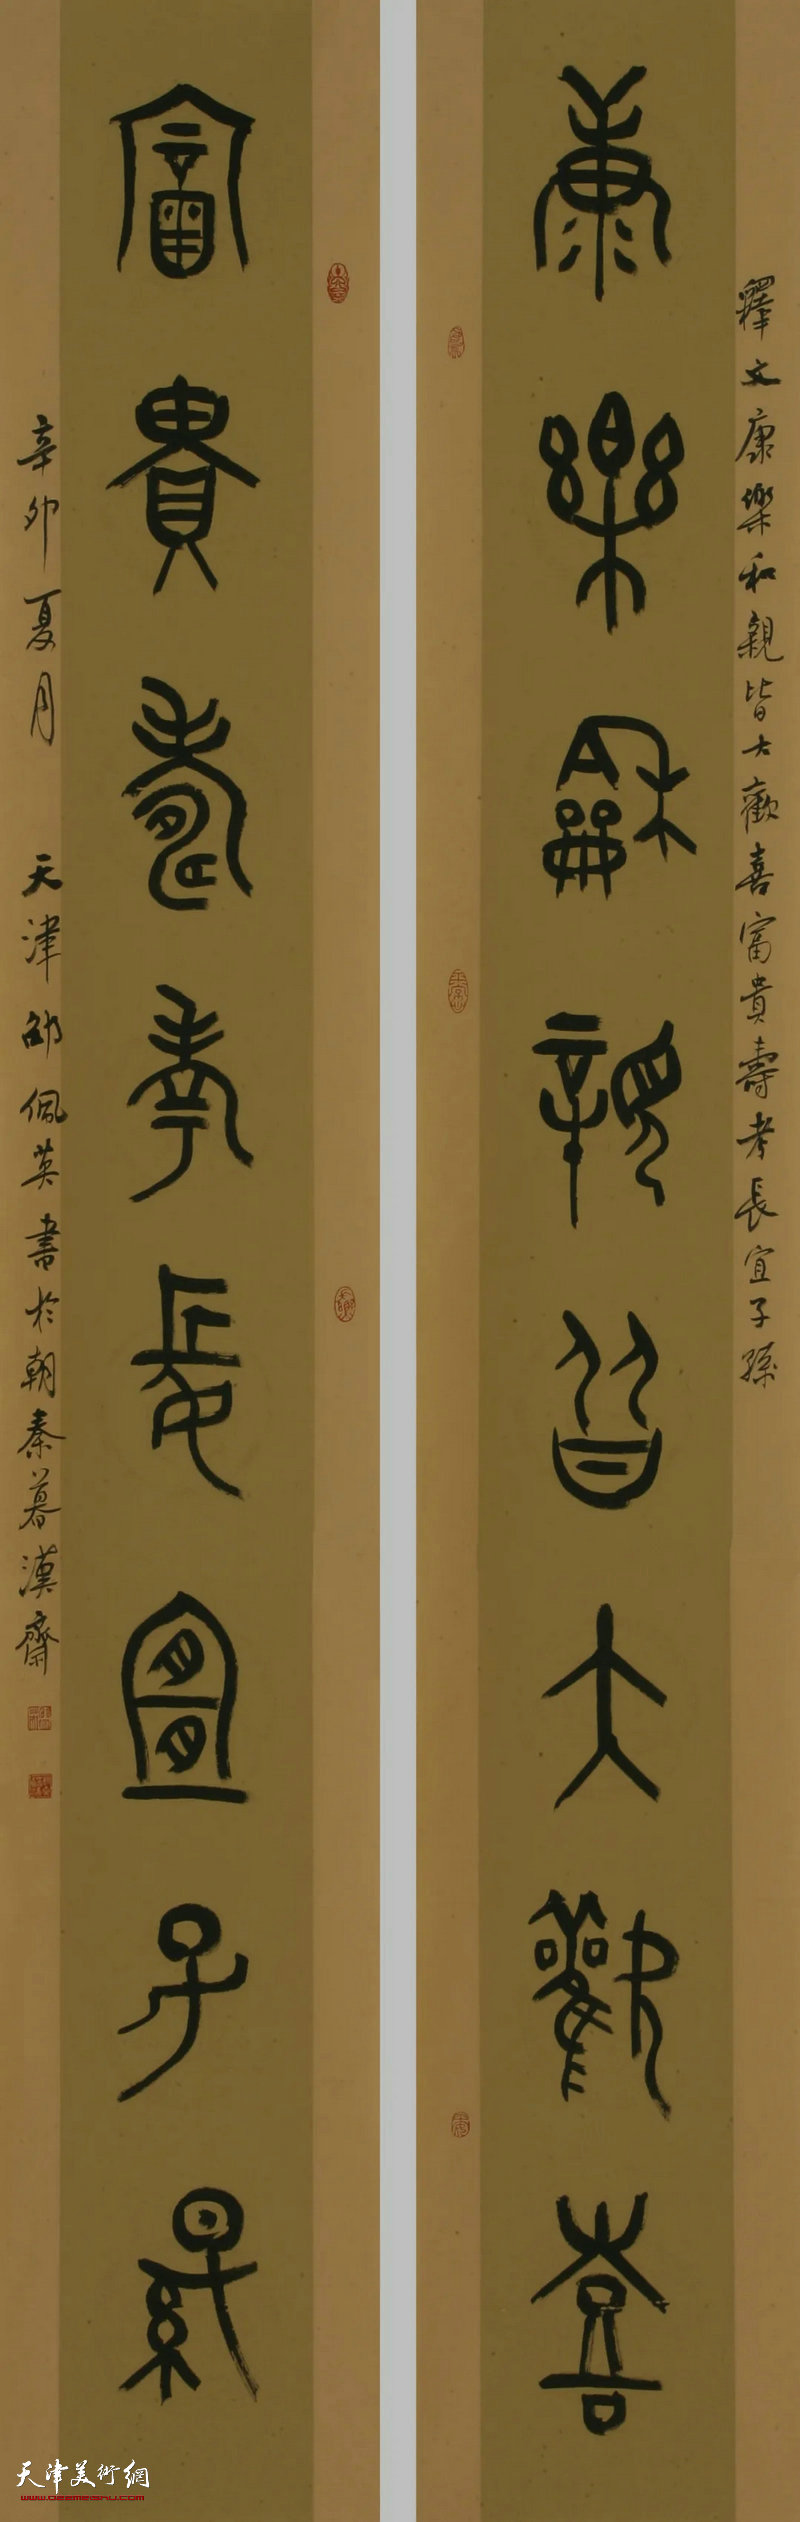 康樂龢親皆大歡喜
釋文康樂和親皆大歡喜富貴壽考長宜子孫
富貴壽考長宜子孫
辛卯夏月 天津邵佩英書於朝秦暮漢齋
天津美術網
www.022meishu.com